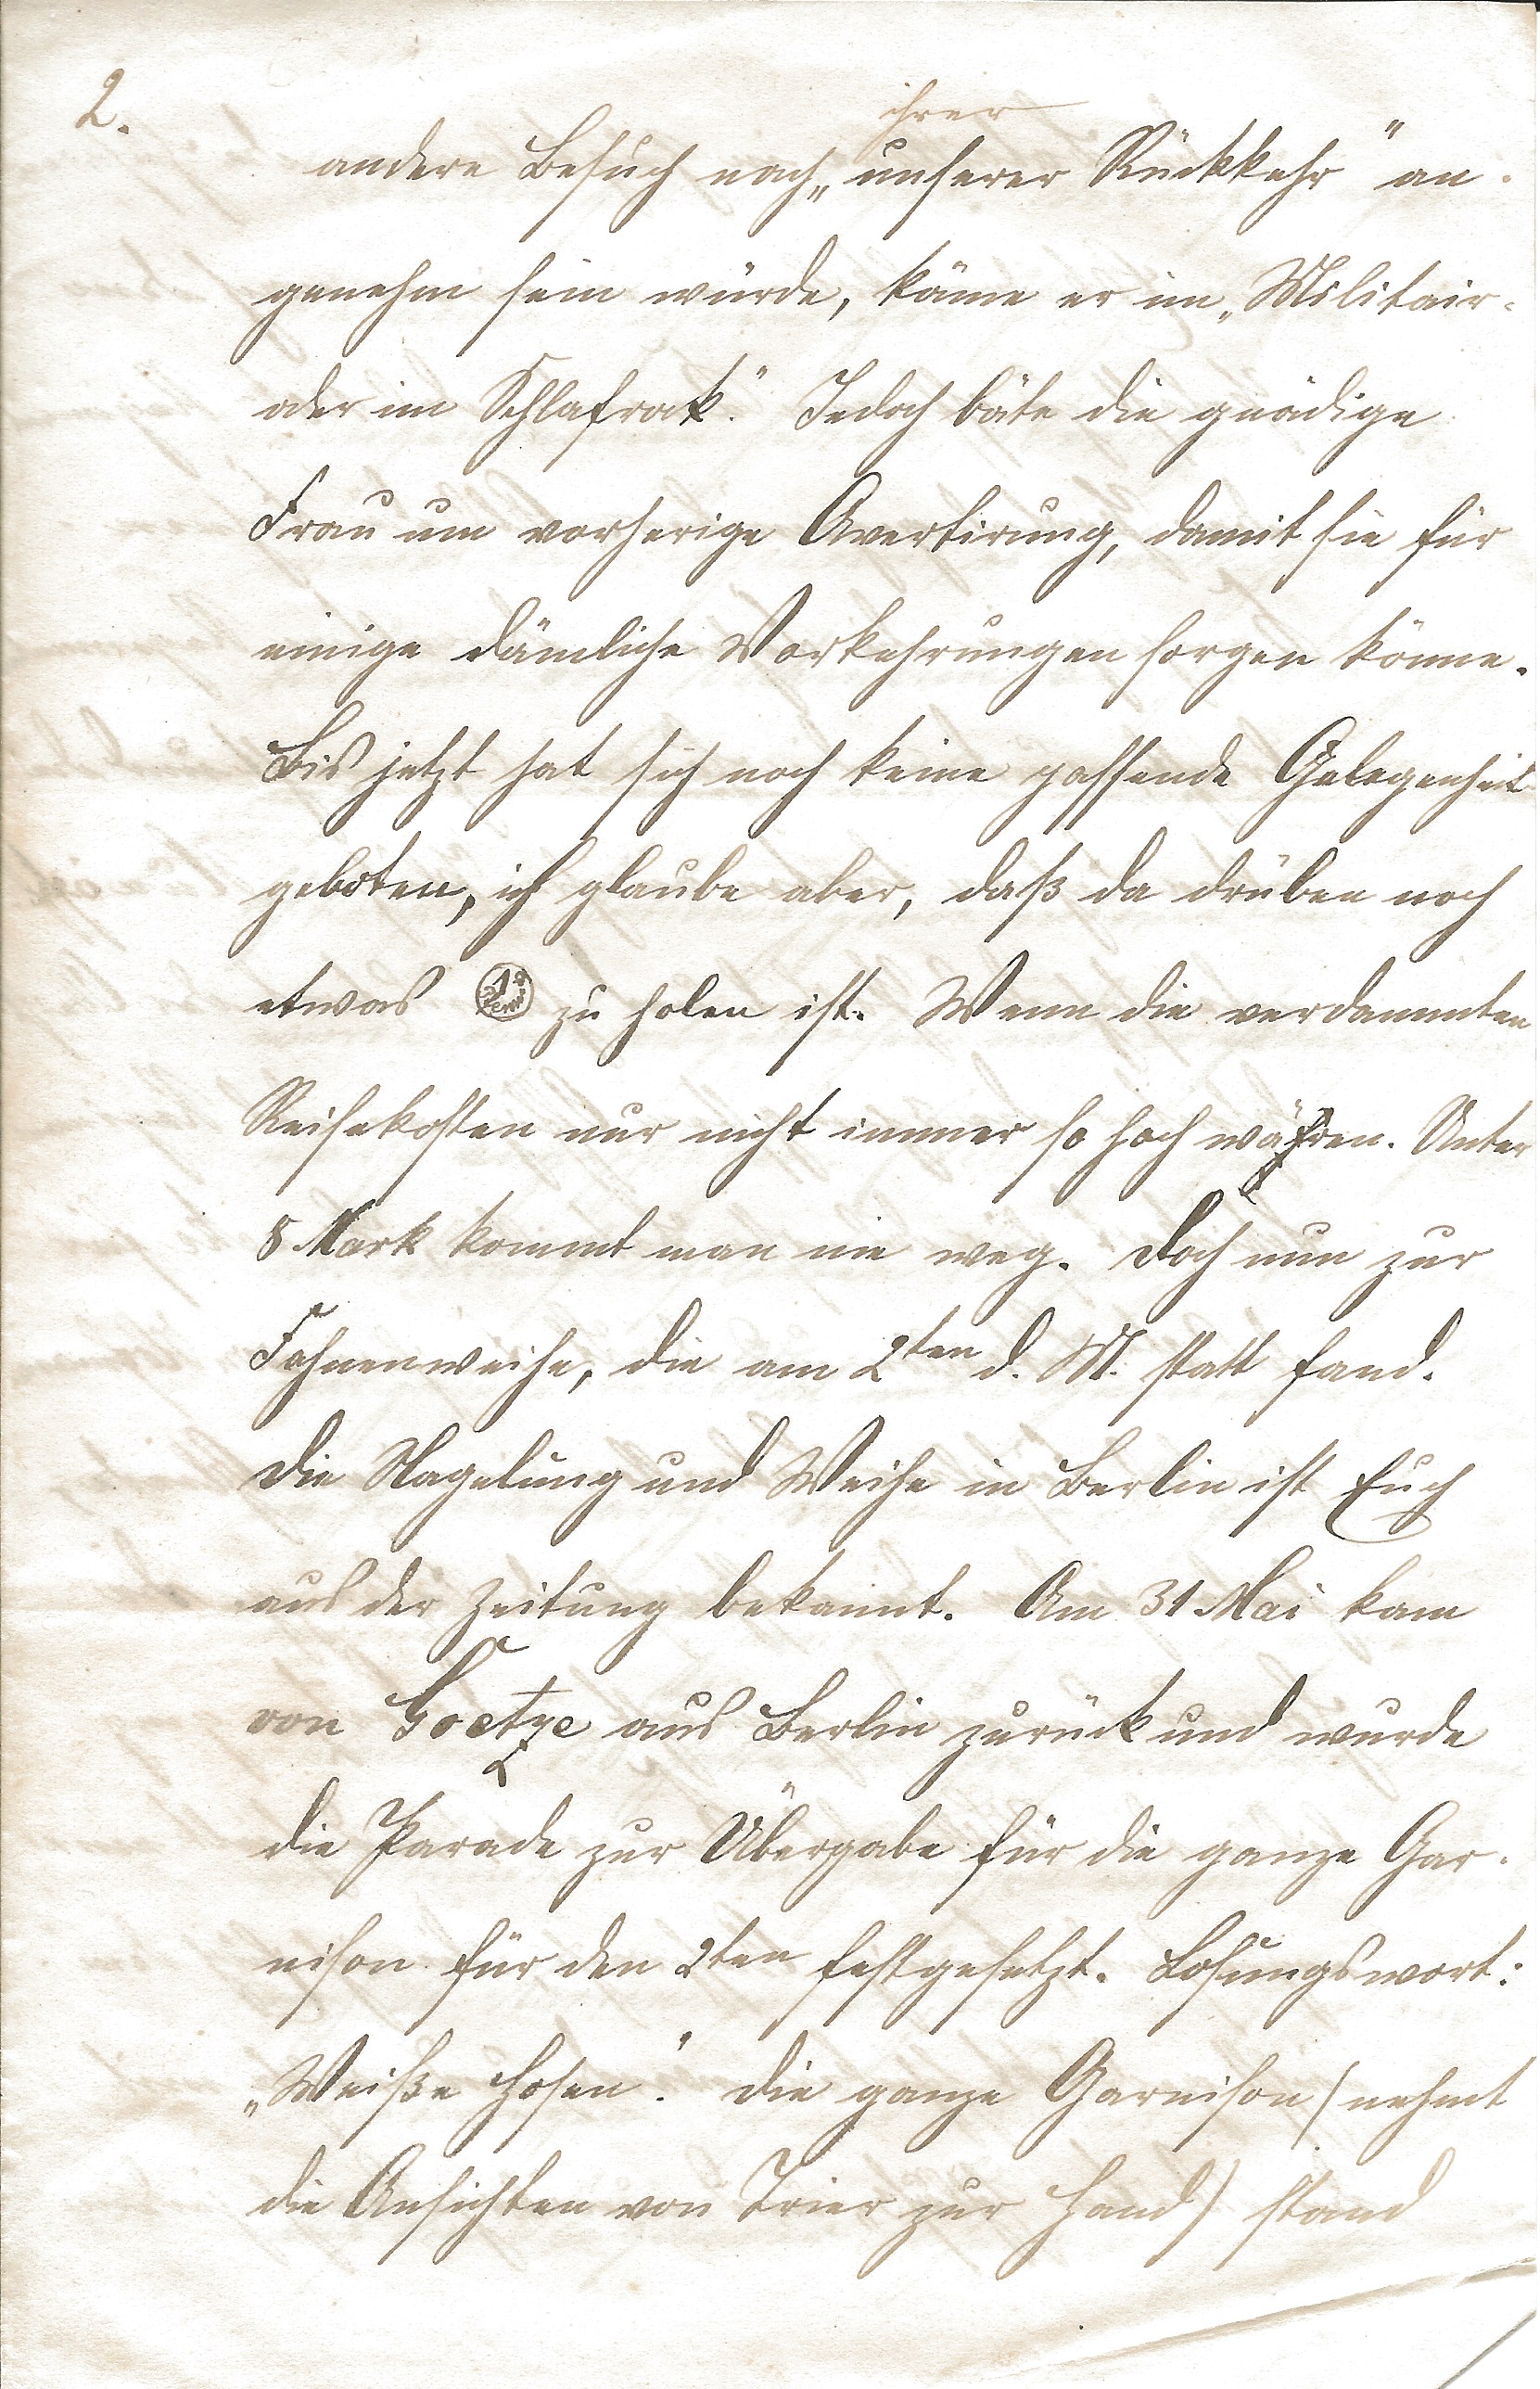 2.
ihrer
andere Besuch nach „unserer Rückkehr" an-
genehm sein würde, käme er im „Militair-
oder im Schlafrock." Jedoch bäte die gnädige
Frau um vorherige Avertirung, damit sie für
einige dämliche Vorkehrungen sorgen könne.
Bis jetzt hat sich noch keine passende Gelegenheit
geboten, ich glaube aber, daß da drüben noch
etwas zu holen ist. Wenn die verdammten
Reisekosten nur nicht immer so hoch wären. Unter
8 Mark kommt man nie weg. Doch nun zur
Fahnenweihe, die am 2ten d. M. statt fand.
Die Nagelung und Weihe in Berlin ist Euch
aus der Zeitung bekannt. Am 31 Mai kam
von Goetze aus Berlin zurück und wurde
die Parade zur Übergabe für die ganze Gar-
nison für den 2ten festgesetzt. Losungswort:
„Weiße Hosen". Die ganze Garnison (nehmt
die Ansichten von Trier zur Hand) stand